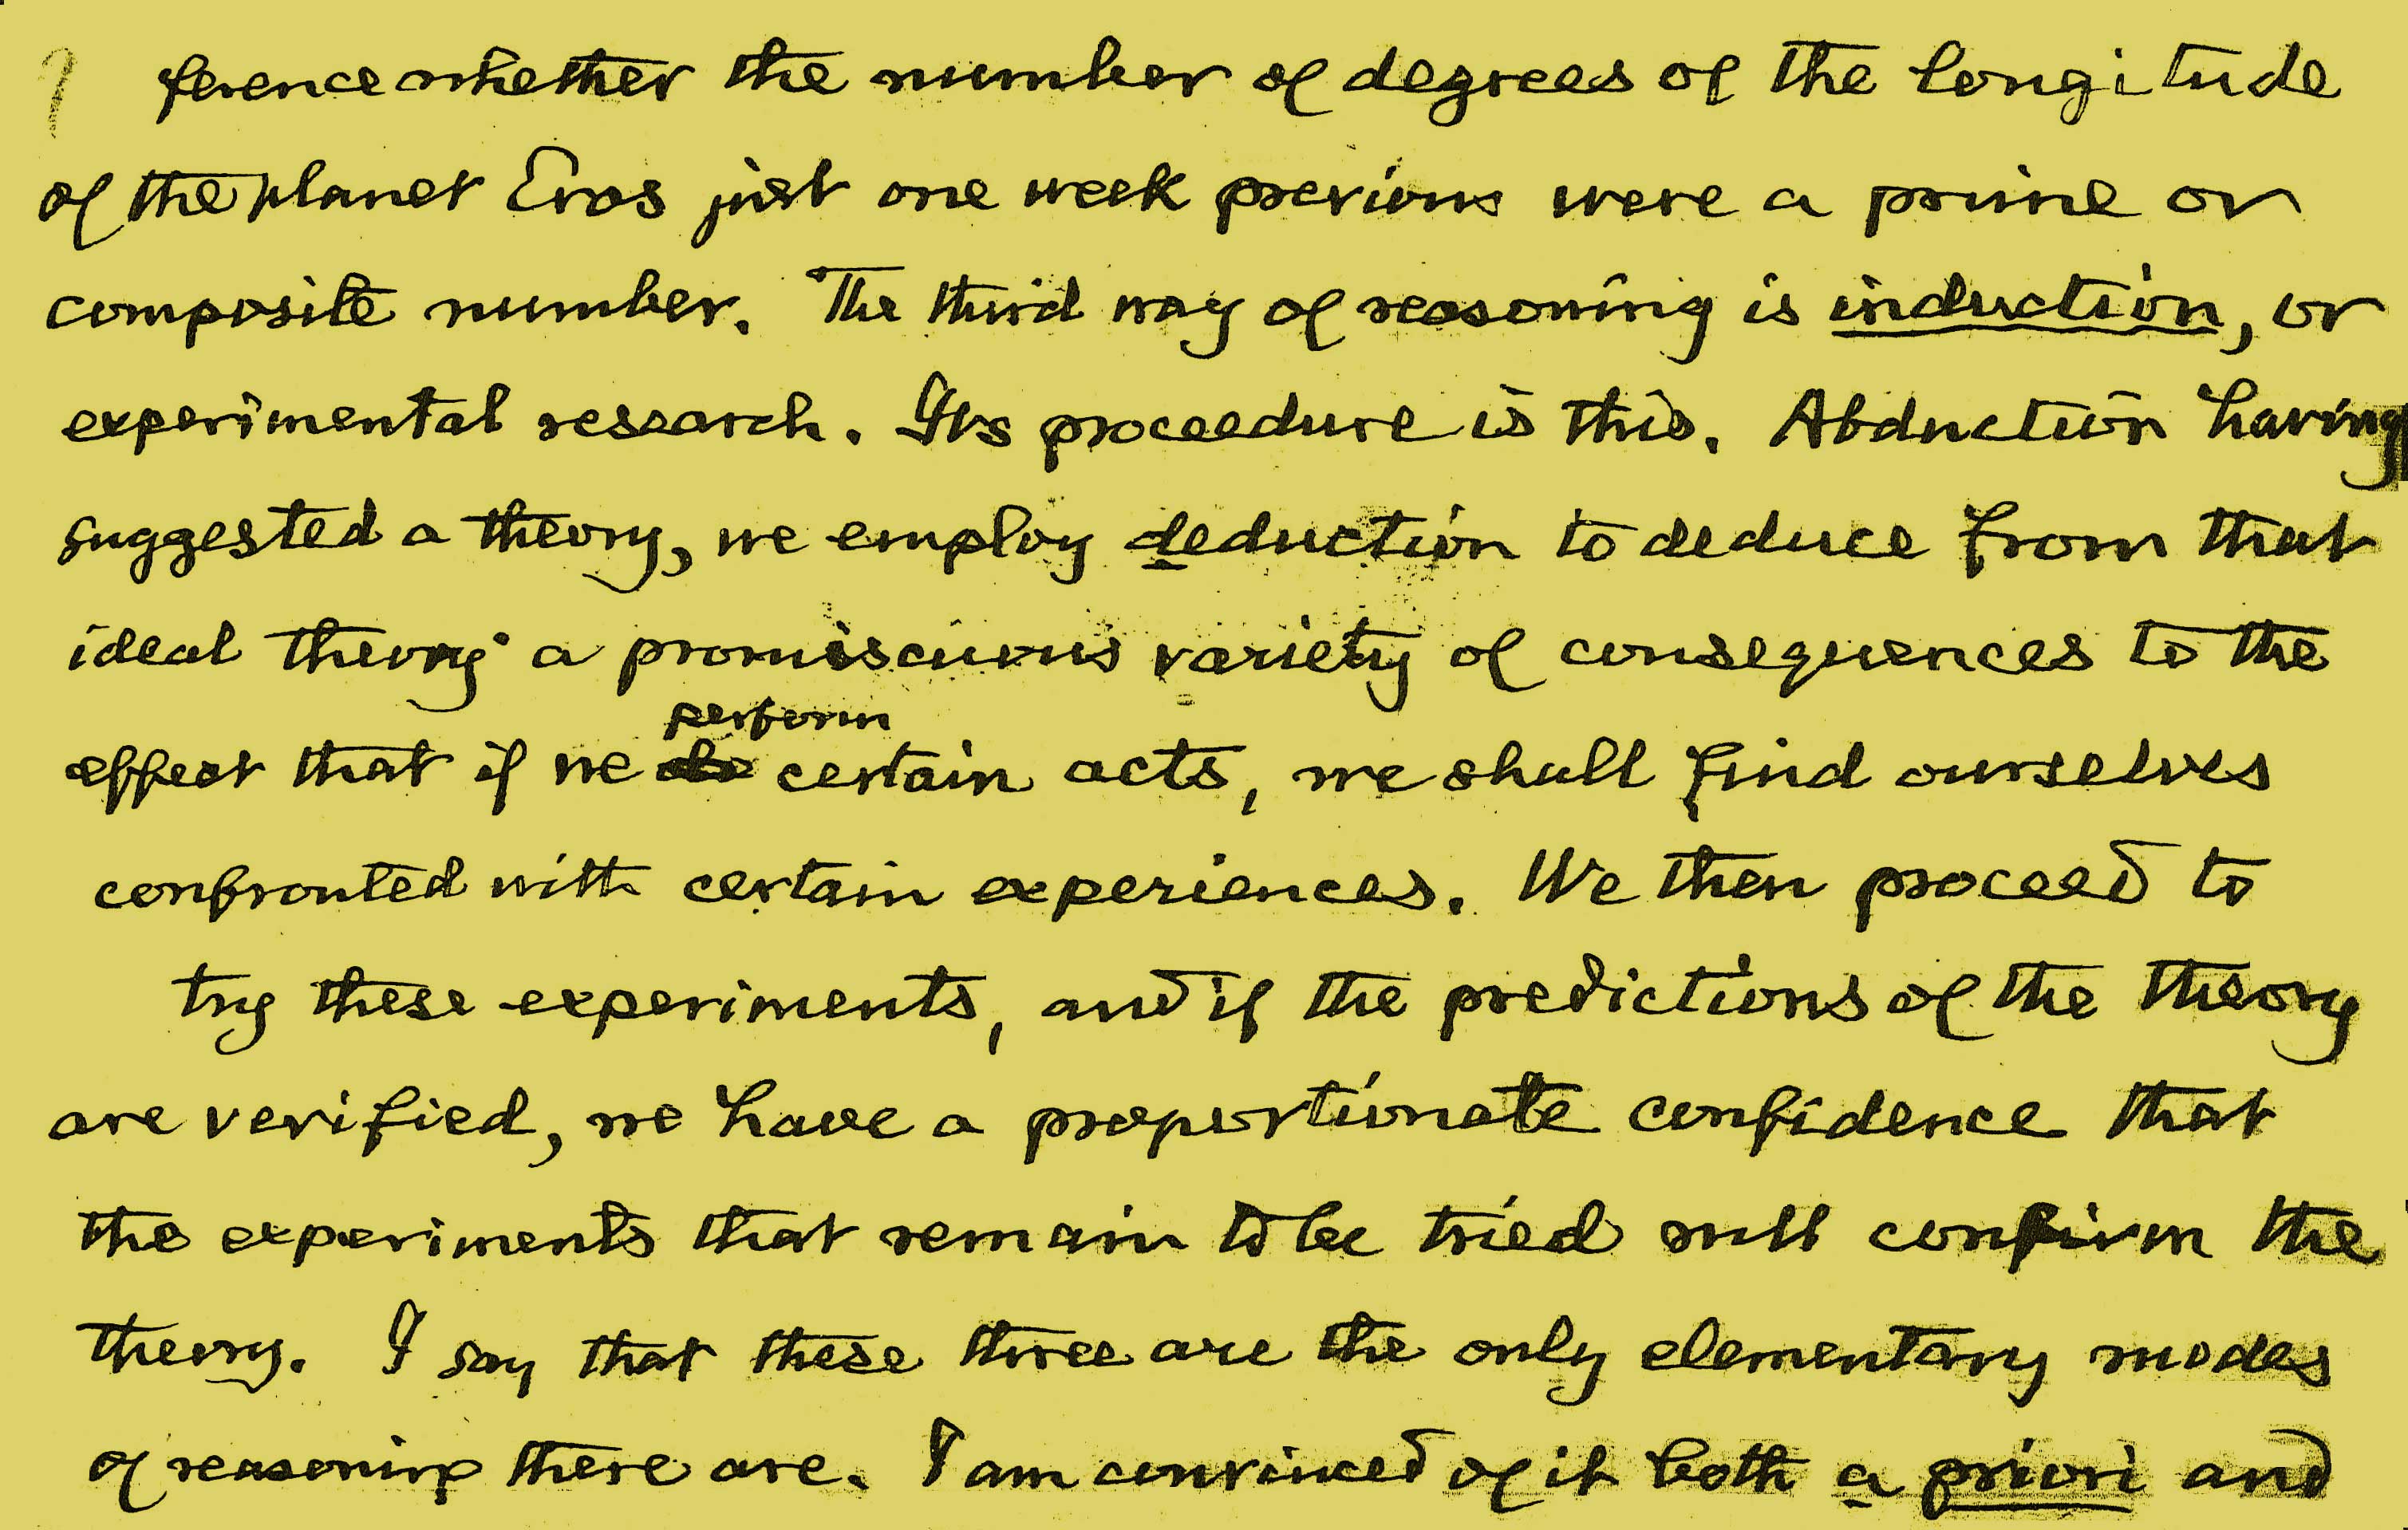 ference whether the number of degrees of the longitude
of the planet Eros just one week previous were a prime or
composite number. The third way of reasoning is induction, or
experimental research. Its proceedure is this. Abduction having
suggested a theory, we employ deduction to deduce from that
ideal theory a promiscuous variety of consequences to the
perform
effect that if we do certain acts, we shall find ourselves
confronted with certain experiences. We then proceed to
try these experiments, and if the predictions of the theory
are verified, we have a proportionate confidence that
the experiments that remain to be tried will confirm the
theory. I say that these three are the only elementary modes
of reasoning there are. I am convinced of it both a priori and